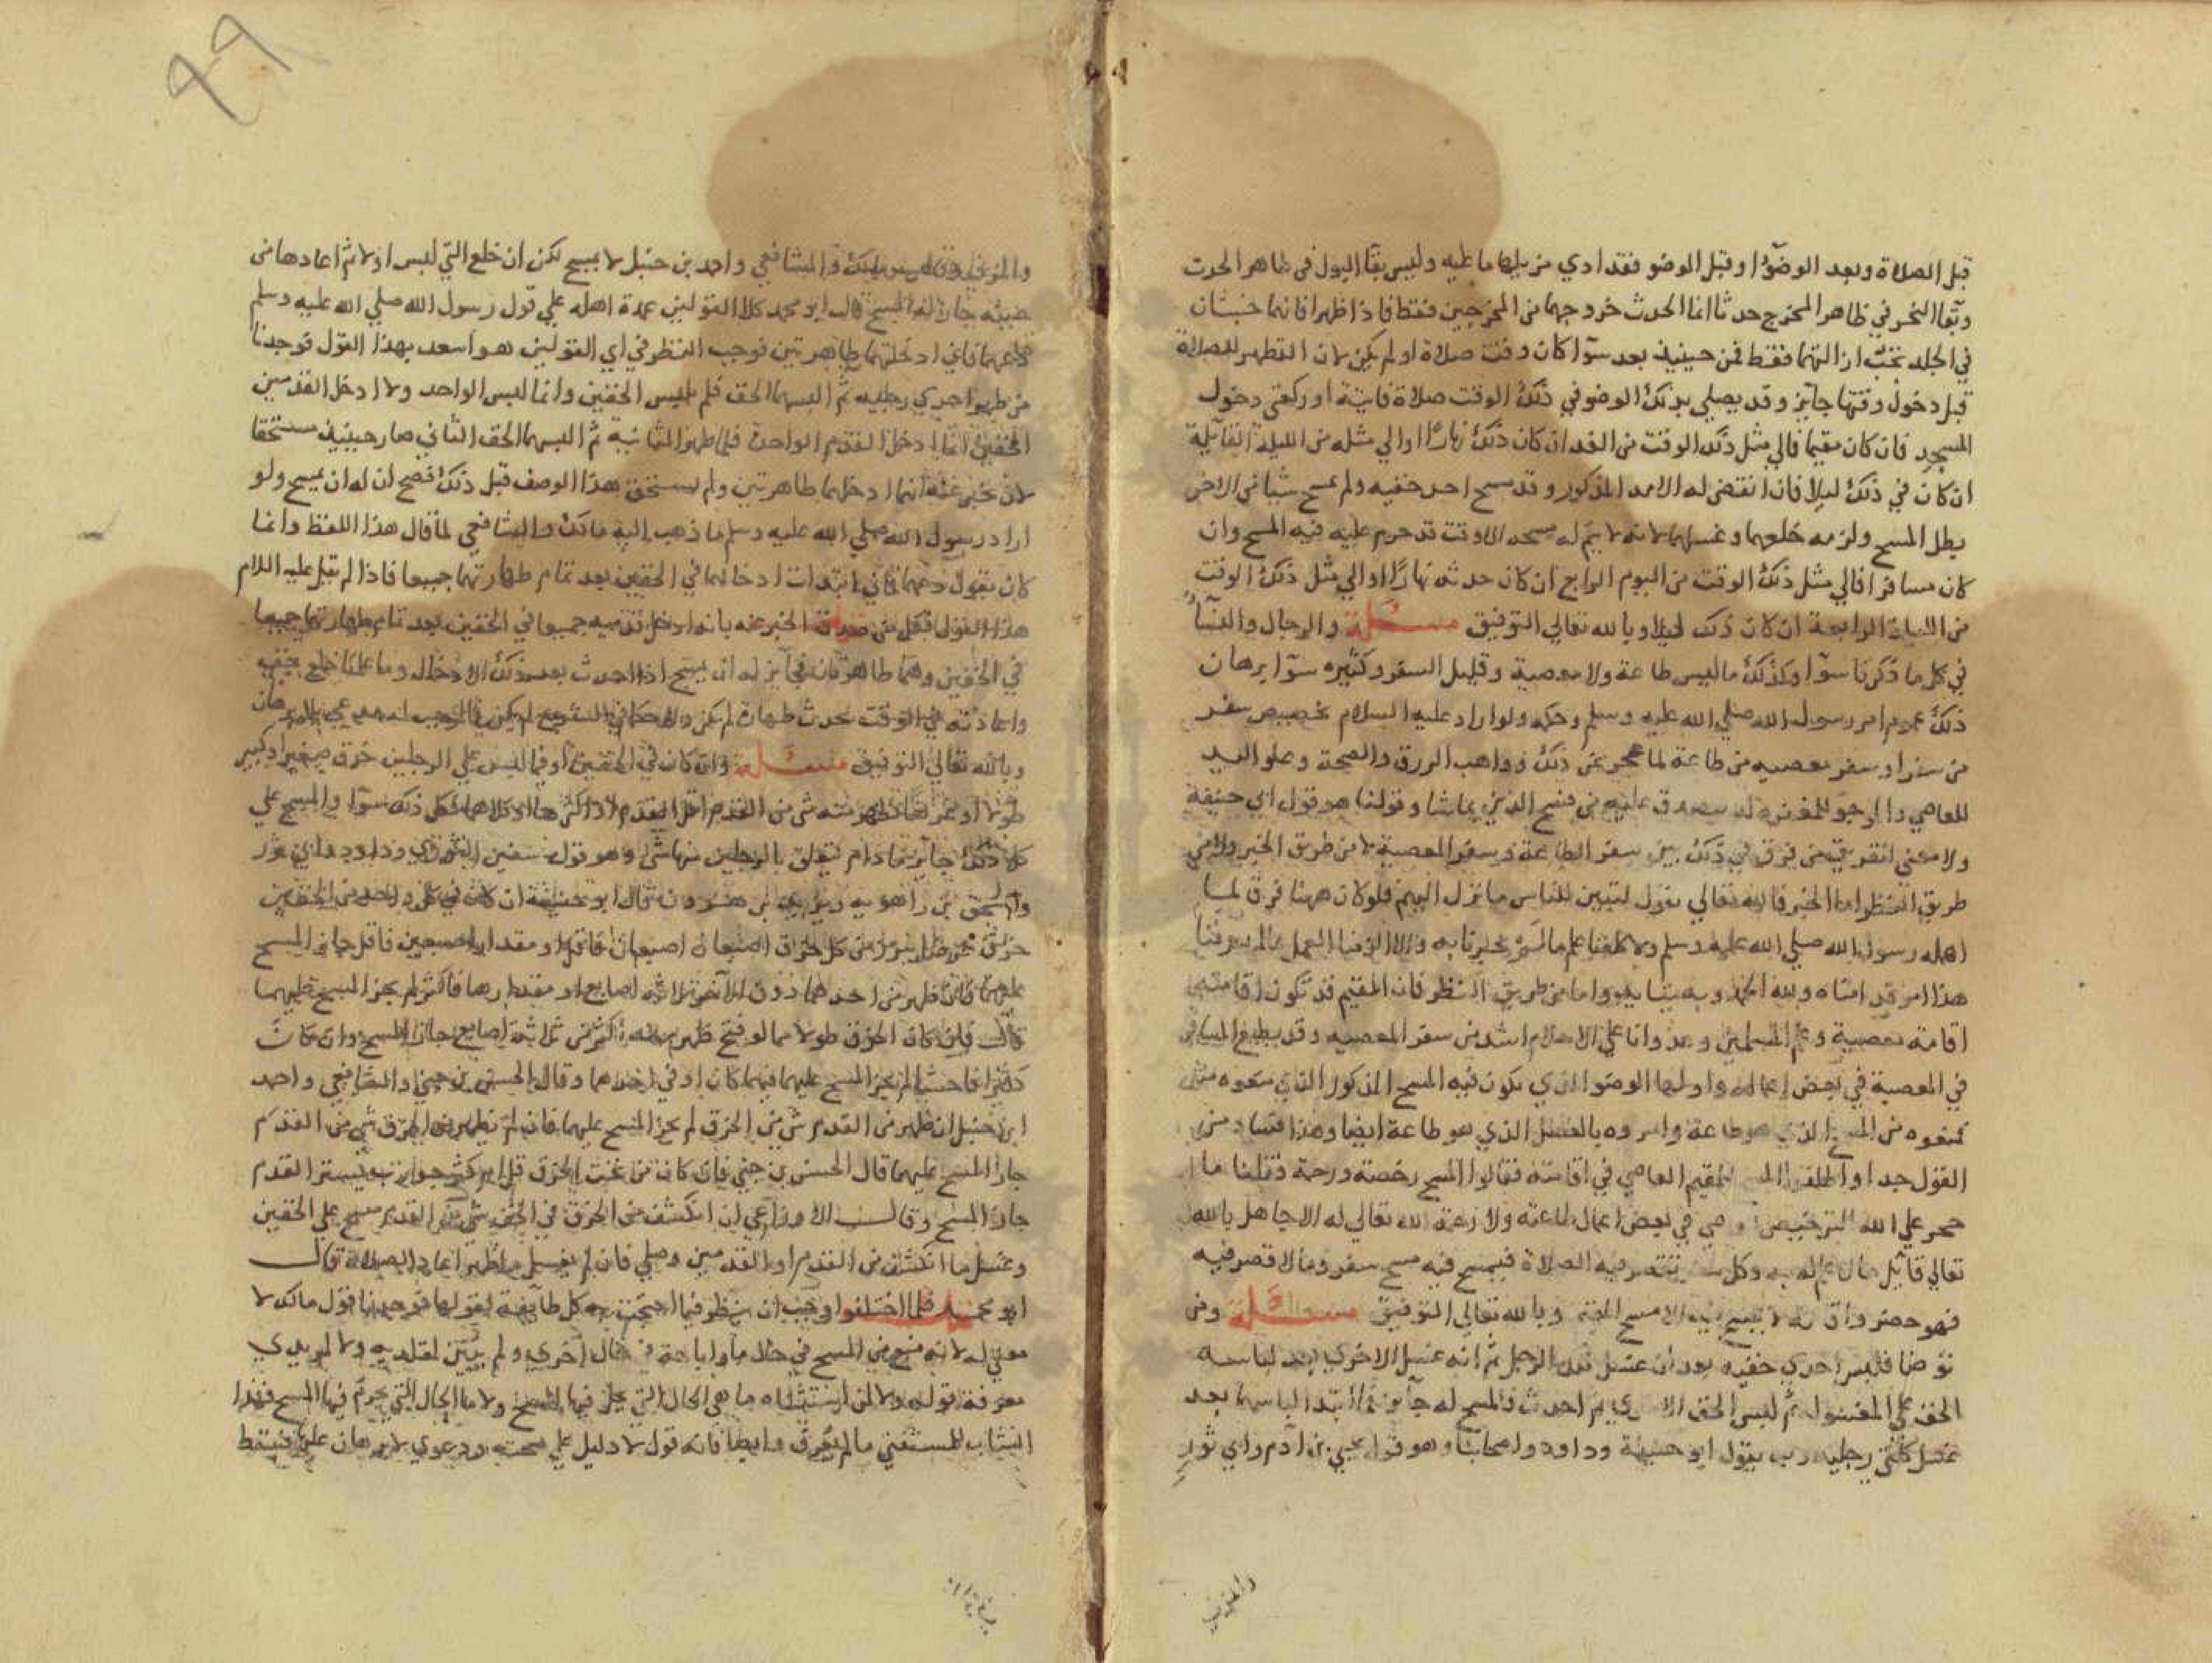 قبل الصلاة وبعد الوضوء او قبل الوضو فقد ادي من عليهما ما عليه وليس بقا البول في ظاهر الحدث
وبقا النحر في ظاهر المخرج حدثا انما الحدث خروجهما من المخرجين فقط فاذا ظهرا فانما خبثان
في الجلد تجب ازالتهما فقط فمن حينيذ بعد سوآ كان وقت صلاة او لم يكن لان التطهر للصلاة
قبل دخول وقتها جايز وقد يصلي بذلك الوضو في ذلك الوقت صلاة فايتة او ركعتي دخول
المسجد فان كان مقيما فالي مثل ذلك الوقت من الغد ان كان ذلك نهارا او الي مثله من الليلة القابلة
ان كان في ذلك ليلا فان انقضى له الامد المذكور وقد مسح احد خفيه ولم يمسح الاخر
بطل المسح ولزمه خلعهما وغسلهما لانه لا يتم له مسحه الا وقت قد حرم عليه فيه المسح وان
كان مسافرا فالي مثل ذلك الوقت من اليوم الرابع ان كان حدثه نهارا او الي مثل ذلك الوقت
من الليلة الرابعة ان كان ذلك ليلا وبالله تعالي التوفيق مسئلة والرجال والنسآ
في كل ما ذكرنا سوآ وكذلك ما ليس طاعة ولا معصية وقليل السفر وكثيره سوآ برهان
ذلك عموم امر رسول الله صلي الله عليه وسلم وحكمه ولو اراد عليه السلام تخصيص سفر
من سفر او سفر معصيه من طاعة لما عجز عن ذلك وواهب الرزق والصحة وعلو اليد
للعاصي والمرجو للمغفرة له يتصدق عليه من فسح الدين بما شا وقولنا هو قول ابي حنيفة
ولا معنى لتفريق من فرق في ذلك بين سفر الطاعة وسفر المعصية لا من طريق الخبر ولا من
طريق النظر اما الخبر فالله تعالي يقول لتبين للناس ما نزل اليهم فلو كان ههنا فرق لما
اهمله رسول الله صلي الله عليه وسلم ولا كلفنا علم ما لم يخبرنا به ولا الزمنا العمل بما لم يعرفنا
هذا امر قد امناه ولله الحمد واما من طريق النظر فان المقيم قد تكون اقامته
اقامة معصية وظلم المسلمين وعدوانا علي الاسلام اشد من سفر المعصيه وقد يطيع المسافر
في المعصية في بعض اعماله واولها الوضو الذي يكون فيه المسح المذكور الذي منعوه منه
فمنعوه من المسح الذي هو طاعة وامروه بالغسل الذي هو طاعة ايضا وهذا فساد من
القول جدا واطلقوا المسح للمقيم العاصي في اقامته فقالوا المسح رخصة ورحمة وقلنا ما
حجر علي الله الترخيص للعاصي في بعض اعمال طاعته ولا رحمة الله تعالي له الا جاهل بالله
تعالي قايل ما لا علم له به وكل سفر تقصر فيه الصلاة فيمسح فيه مسح سفر وما لا قصر فيه
فهو حضر لا يمسح فيه الا مسح المقيم وبالله تعالي التوفيق مسئلة ومن
توضا فلبس احدي خفيه بعد ان غسل تلك الرجل ثم انه غسل الاخري بعد لباسه
الخف علي المغسول ثم لبس الخف الاخر ثم احدث فالمسح له جايز كما لو ابتدا لباسهما بعد
غسل كلتي رجليه وبه يقول ابو حنيفة وداود واصحابنا وهو قول يحيي بن آدم وابي ثور
والمزني
٤٩
والمزني وقال مالك والشافعي واحمد بن حنبل لا يمسح لكن ان خلع التي لبس اولا ثم اعادها من
حينه جاز له المسح قال ابو محمد كلا القولين عمدة اهله علي قول رسول الله صلي الله عليه وسلم
دعهما فاني ادخلتهما طاهرتين فوجب النظر في اي القولين هو اسعد بهذا القول فوجدنا
من طهر احدي رجليه ثم البسها الخف فلم يلبس الخفين وانما لبس الواحد ولا ادخل القدمين
الخفين انما ادخل القدم الواحدة فلما طهر الثانية ثم البسها الخف الثاني صار حينيذ مستحقا
لان يخبر عنه انما ادخلهما طاهرتين ولم يستحق هذا الوصف قبل ذلك فصح ان له ان يمسح ولو
اراد رسول الله صلي الله عليه وسلم ما ذهب اليه مالك والشافعي لما قال هذا اللفظ وانما
كان يقول دعهما فاني ابتدات ادخالهما في الخفين بعد تمام طهارتهما جميعا فاذا لم يقل عليه السلام
هذا القول فكل من صدق الخبر عنه بانه ادخل قدميه جميعا في الخفين بعد تمام طهارتهما جميعا
في الخفين وهما طاهرتان فجايز له ان يمسح اذا احدث بعد ذلك الادخال وما علمنا خلع خفيه
واعادته في الوقت يحدث طهارة لم تكن ولا حكما في الشرع لم يكن فالموجب له مدعي بلا برهان
وبالله تعالي التوفيق مسئلة وان كان في الخفين او فيما لبس علي الرجلين خرق صغير او كبير
طولا او عرضا فظهر منه شي من القدم اقل القدم او اكثرها او كلاهما فكل ذلك سوآ والمسح علي
كل ذلك جايز ما دام يتعلق بالرجلين منهما شي وهو قول سفين الثوري وداود وابي ثور
واسحق بن راهويه ويزيد بن هرون قال ابو حنيفة ان كان في كل واحد من الخفين
خرق عرضا يبرز من كل خرق اصبعان فاقل او مقدار اصبعين فاقل جاز المسح
عليهما فان ظهر من احدهما دون الاخر ثلاثة اصابع او مقدارها فاكثر لم يجز المسح عليهما
قال فان كان الخرق طولا مما لو فتح ظهر منه اكثر من ثلاثة اصابع جاز المسح وان كان
كثيرا فاحشا لم يجز المسح عليهما فيهما كان او في احدهما وقال الحسن بن حيي والشافعي واحمد
ابن حنبل ان ظهر من القدم شي من الخرق لم يجز المسح عليهما فان لم يظهر من الخرق شي من القدم
جاز المسح عليهما قال الحسن بن حيي فان كان من تحت الخرق جورب يستر القدم
جاز المسح وقال الاوزاعي ان انكشف من الخرق في الخف شي من القدم مسح علي الخفين
وغسل ما انكشف من القدم او القدمين وصلي فان لم يغسل ما ظهر اعاد الصلاة قال
ابو محمد فلما اختلفوا وجب ان ننظر فيما احتجت به كل طايفة لقولها فوجدنا قول مالك لا
معني له لانه منع من المسح في حال واباحة في حال اخري ولم يبين لمقلديه ولا لمريدي
معرفة قوله ولا لمن استفتاه ما هي الحال التي يحل فيها المسح ولا ما الحال التي يحرم فيها المسح فهذا
انشاب للمستفتي ما لم يعرف وايضا فانه قول لا دليل علي صحته ودعوي لا برهان عليها فسقط